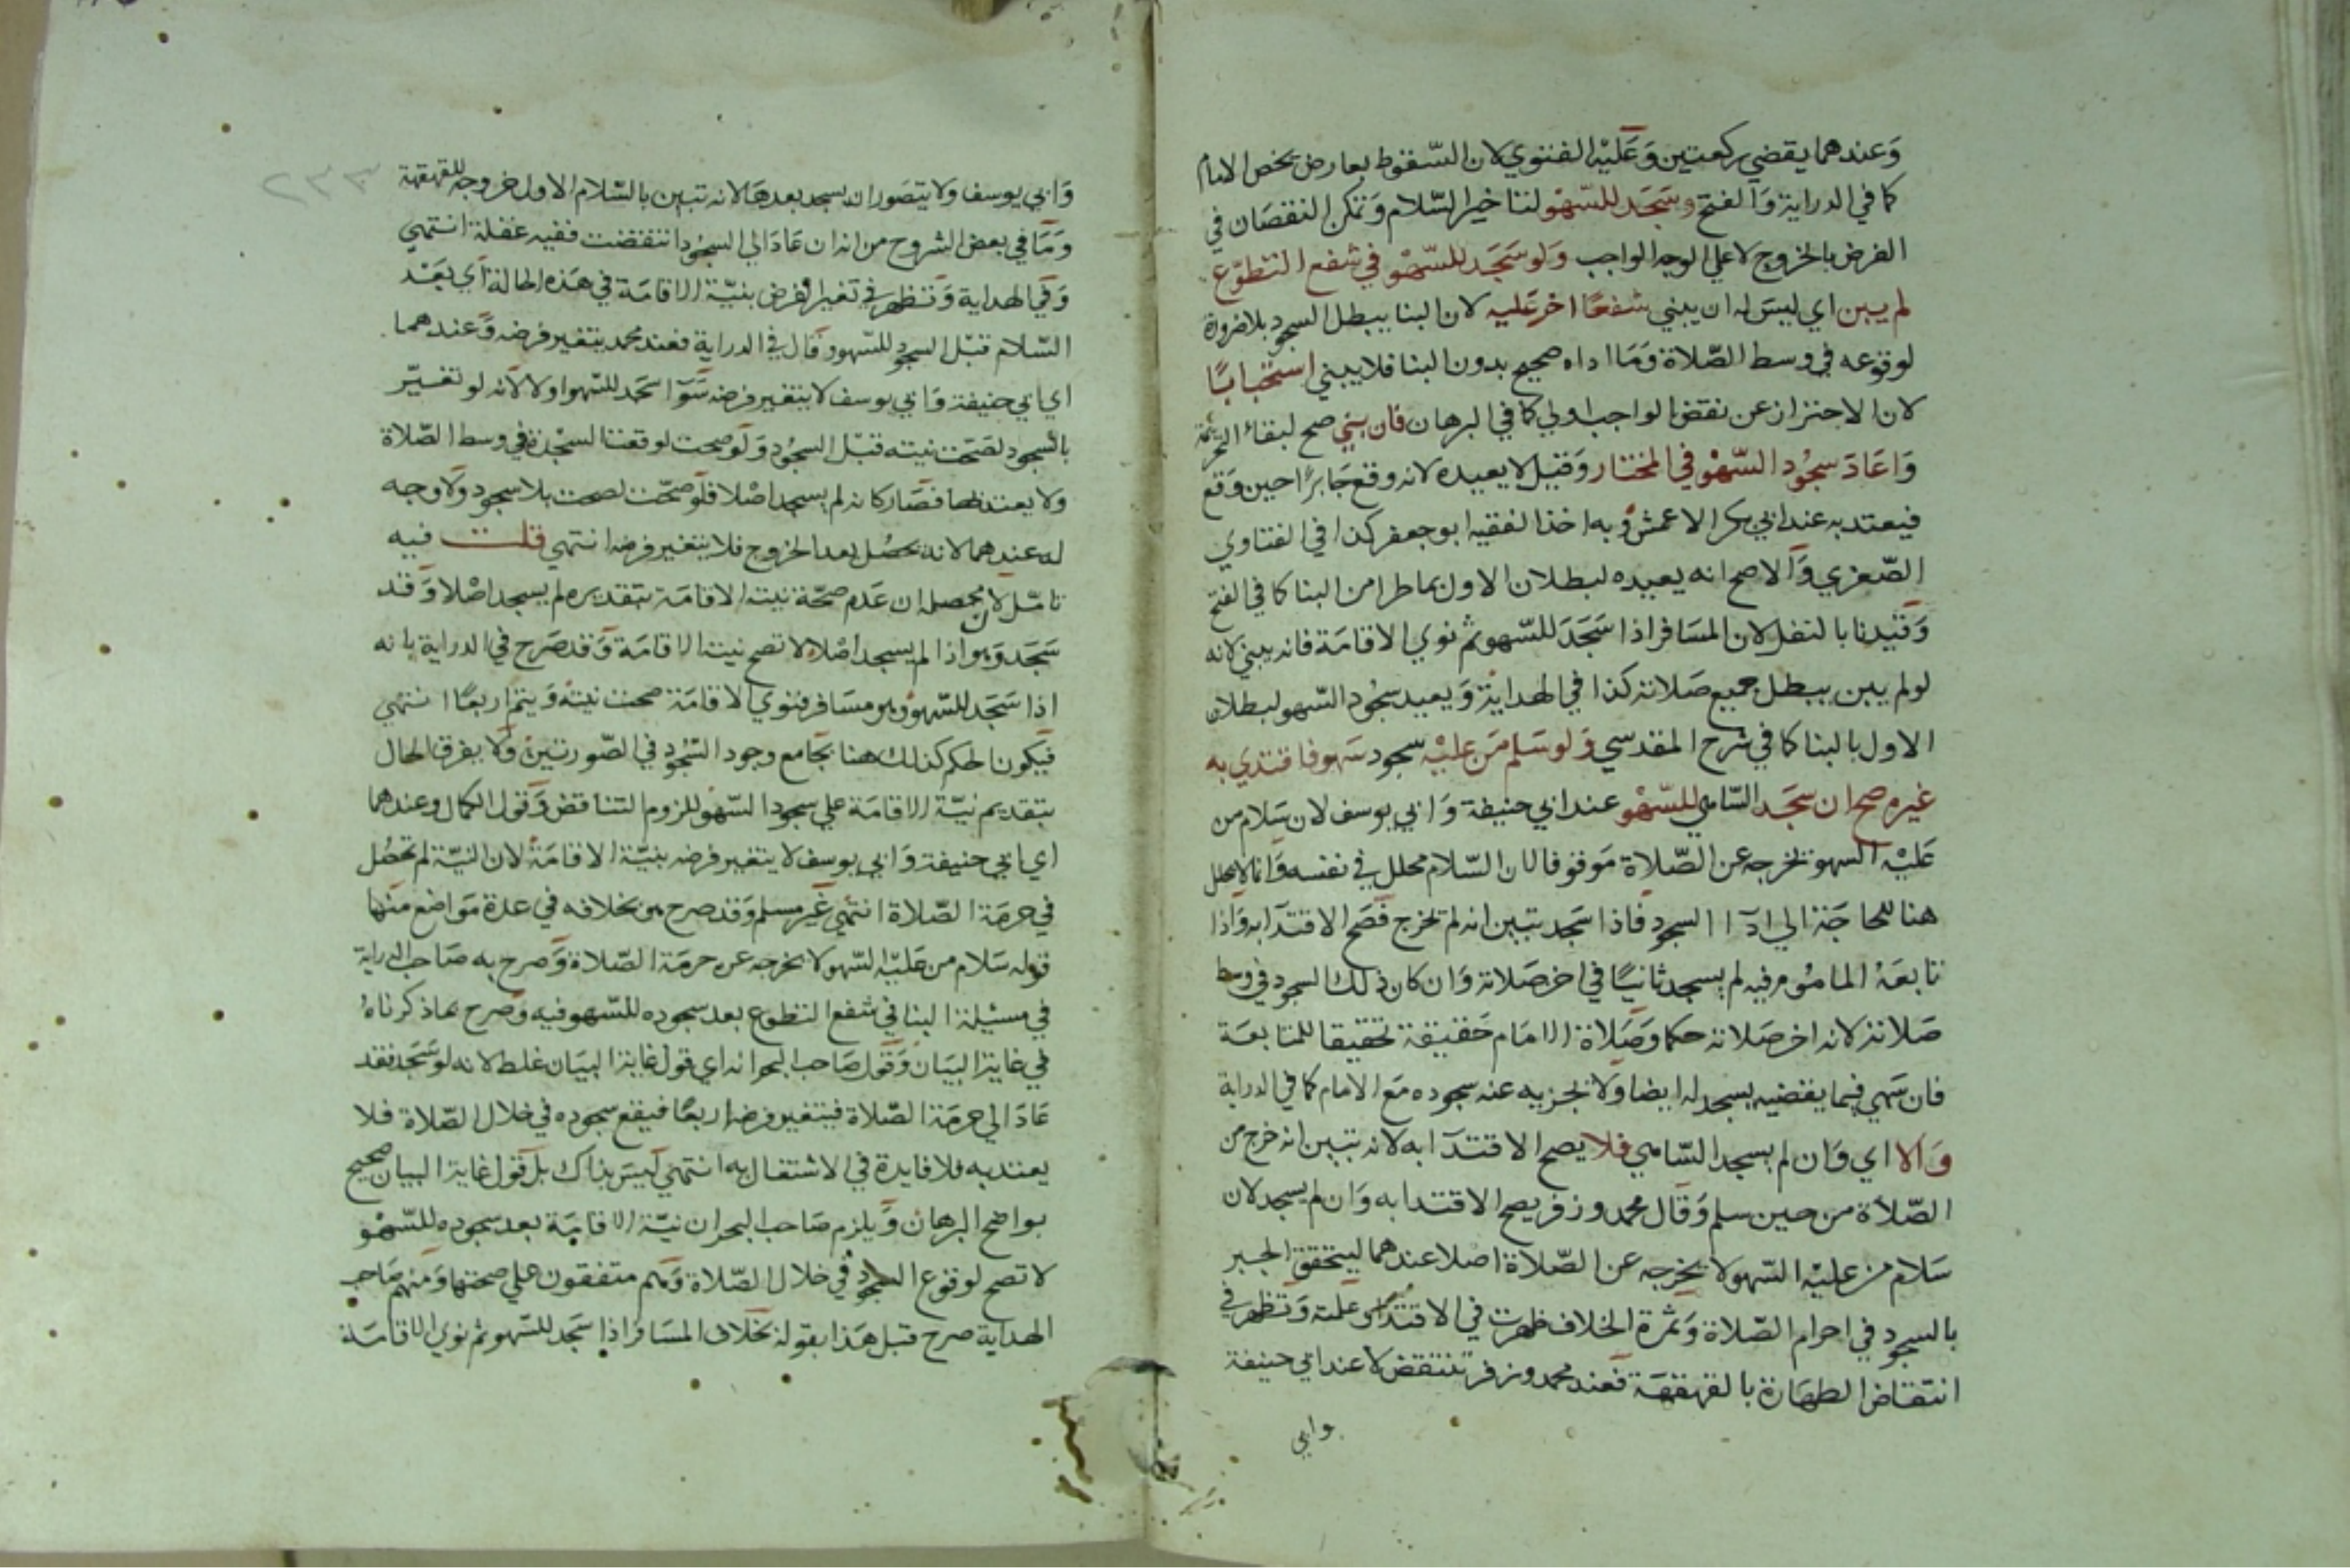 وَعندهما يقضي ركعتين وَعَليْه الفتوي لان السّقوط بعارض يخص الامام
كما في الدراية وَالفتح وسَجَد للسّهْو لتاخير السّلام وَتمكن النقصَان في
الفرض بالخروج لا علي الوجه الواجب وَلو سَجَد للسّهْو في شفع التطوّع
لم يبن اي ليسَ له ان يبني شفعًا اخر عَليه لان البنا يبطل السجود بلا ضرورة
لوقوعه في وسط الصّلاة وَمَا اداه صحيح بدون البنا فلا يبني استحْبابًا
لان الاحتراز عن نقض الواجب اولي كما في البرهان فان بني صح لبقاء التحريمة
وَاعَادَ سجُود السّهْو في المختار وَقيل لا يعيده لانه وقع جَابرًا حين وَقع
فيعتد به عند ابي بكر الاعمش وَبه اخذ الفقيه ابو جعفر كذا في الفتاوي
الصّغري وَالاصح انه يعيده لبطلان الاول بما طرا من البنا كما في الفتح
وَقيدنا بالنفل لان المسَافر اذا سَجَدَ للسّهو ثم نوي الاقامَة فانه يبني لانه
لو لم يبن يبطل جميع صَلاته كذا في الهدايَة وَيعيد سجُود السّهو لبطلان
الاول بالبنا كما في شرح المقدسي وَلو سَلم مَن عليْه سجود سَهو فاقتدي به
غيره صح ان سجَد السّاهي للسّهْو عند ابي حنيفة وَابي يوسف لان سَلام من
عَليْه السهو يخرجه عن الصّلاة مَوقوفا لان السّلام محلل في نفسه وَانما لا يحلل
هنا للحاجَة الي ادَآ السجود فاذا سَجد تبين انه لم يخرج فصَح الاقتدَا به وَاذا
تابعَهُ المامُوم فيه لم يسجد ثانيًا في اخر صَلاته وَان كان ذلك السجود في وسط
صَلاته لانه اخر صَلاته حكما وَصَلاة الامَام حَقيقة تحقيقا للمتابعَة
فان سَهي فيما يقضيه يسجد له ايضا وَلا يجزيه عنه سجوده مَع الامام كما في الدراية
وَالا اي وَان لم يسجد السّاهي فلا يصح الاقتدَآ به لانه تبين انه خرج من
الصّلاة من حين سلم وَقال محمد وزفر يصح الاقتدا به وَان لم يسجد لان
سَلام من عليْه السّهو لا يخرجه عن الصّلاة اصلا عندهما ليتحقق الجبر
بالسجود في احرام الصّلاة وَثمرة الخلاف ظهرت في الاقتدا كما علمته وَتظهر في
انتقاض الطهَارة بالقهقهَة فعند محمد وزفر تنتقض لا عند ابي حنيفة
وابي
٢٣٣
وَابي يوسف وَلا يتصَور ان يسجد بعدهَا لانه تبين بالسّلام الاول خروجه للقهقهة
وَمَا في بعض الشروح من انه ان عَادَ الي السجُود انتقضت ففيه غفلة انتهي
وَفي الهداية وَتظهر في تغير الفرض بنيّة الاقامَة في هَذه الحالة اي بعَد
السّلام قبْل السجود للسّهو وقال في الدراية فعند محمد يتغير فرضه وَعندهما
اي ابي حنيفة وَابي يوسف لا يتغير فرضه سَوَآ سَجَد للسّهو اولا لانه لو تغيّر
بالسجود لصَحت نيته قبْل السجُود وَلو صحت لوقعت السجْدة في وسط الصّلاة
ولا يعتد بها فصَار كانه لم يسجد اصْلا فلو صحّت لصحت بلا سجود وَلا وجه
له عندهما لانه يحصُل بعد الخروج فلا يتغير فرضه انتهي قلت فيه
تامّل لان محصله ان عَدم صحّة نيته الاقامَة بتقديره لم يسجد اصْلا وَقد
سَجَد وَهو اذا لم يسجد اصْلا لا تصح نيته الاقامَة وَقد صَرح في الدراية بانه
اذا سَجَد للسّهو وهو مسَافر فنوي الاقامَة صحت نيته وَيتم اربعًا انتهي
فيكون الحكم كذلك هنا بجَامع وجود السّجُود في الصّورتين وَلا يفرق الحال
بتقديم نيّة الاقامَة علي سجود السّهو للزوم التناقض وَقول الكمال وعندهما
اي ابي حنيفة وَابي يوسف لا يتغير فرضه بنيّة الاقامَة لان النيّة لم تحصُل
في حرمَة الصّلاة انتهي غَير مسلم وَقد صرح هو بخلافه في عدة مَواضع منها
قوله سَلام من عَليْه السّهو لا يخرجه عن حرمَة الصّلاة وَصرح به صَاحب الدراية
في مسئلة البنا في شفع التطوع بعد سجوده للسّهو فيه وَصرح بما ذكرناهُ
في غاية البيَان وَقول صَاحب البحر انه اي قول غاية البيَان غلط لانه لو سَجَد فقد
عَادَ الي حرمَة الصّلاة فيتغير فرضه اربعًا فيقع سجوده في خلال الصّلاة فلا
يعتد به فلا فايدة في الاشتغال به انتهي ليسَ بذاك بل قول غاية البيان صحيح
بواضح البرهان وَيلزم صَاحب البحر ان نيّة الاقامَة بعد سجوده للسّهْو
لا تصح لوقوع السجود في خلال الصّلاة وَهم متفقون علي صحتها وَمنهم صَاحب
الهداية صرح قبل هَذا بقوله بخلاف المسَافر اذا سَجَد للسّهو ثم نوي الاقامَة